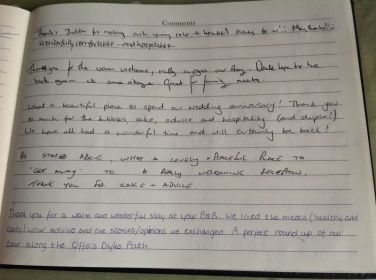 Comments
Thanks for making such yummy cake + beautiful
wonderfully comfortable - and hospitable
Thank you for the warm welcome, really enjoyed our stay. Would love to be
back again at some stage. Great for family meets.
What a beautiful place to spend our wedding anniversary! Thank you
so much for the bubbles, cake, advice and hospitality (and
We have all had a wonderful time and will certainly be back!
AS STATED ABOVE, WHAT A LOVELY + PEACEFUL PLACE TO
"GET AWAY" TO A REALLY WELCOMING RECEPTION.
THANK YOU FOR CAKE + ADVICE.
Thank you for a warm and wonderful stay at your B&B. We loved the meals (healthy and
tasty) your advice and the stories/opinions we exchanged. A perfect round up of our
tour along the Offa's Dyke Path.